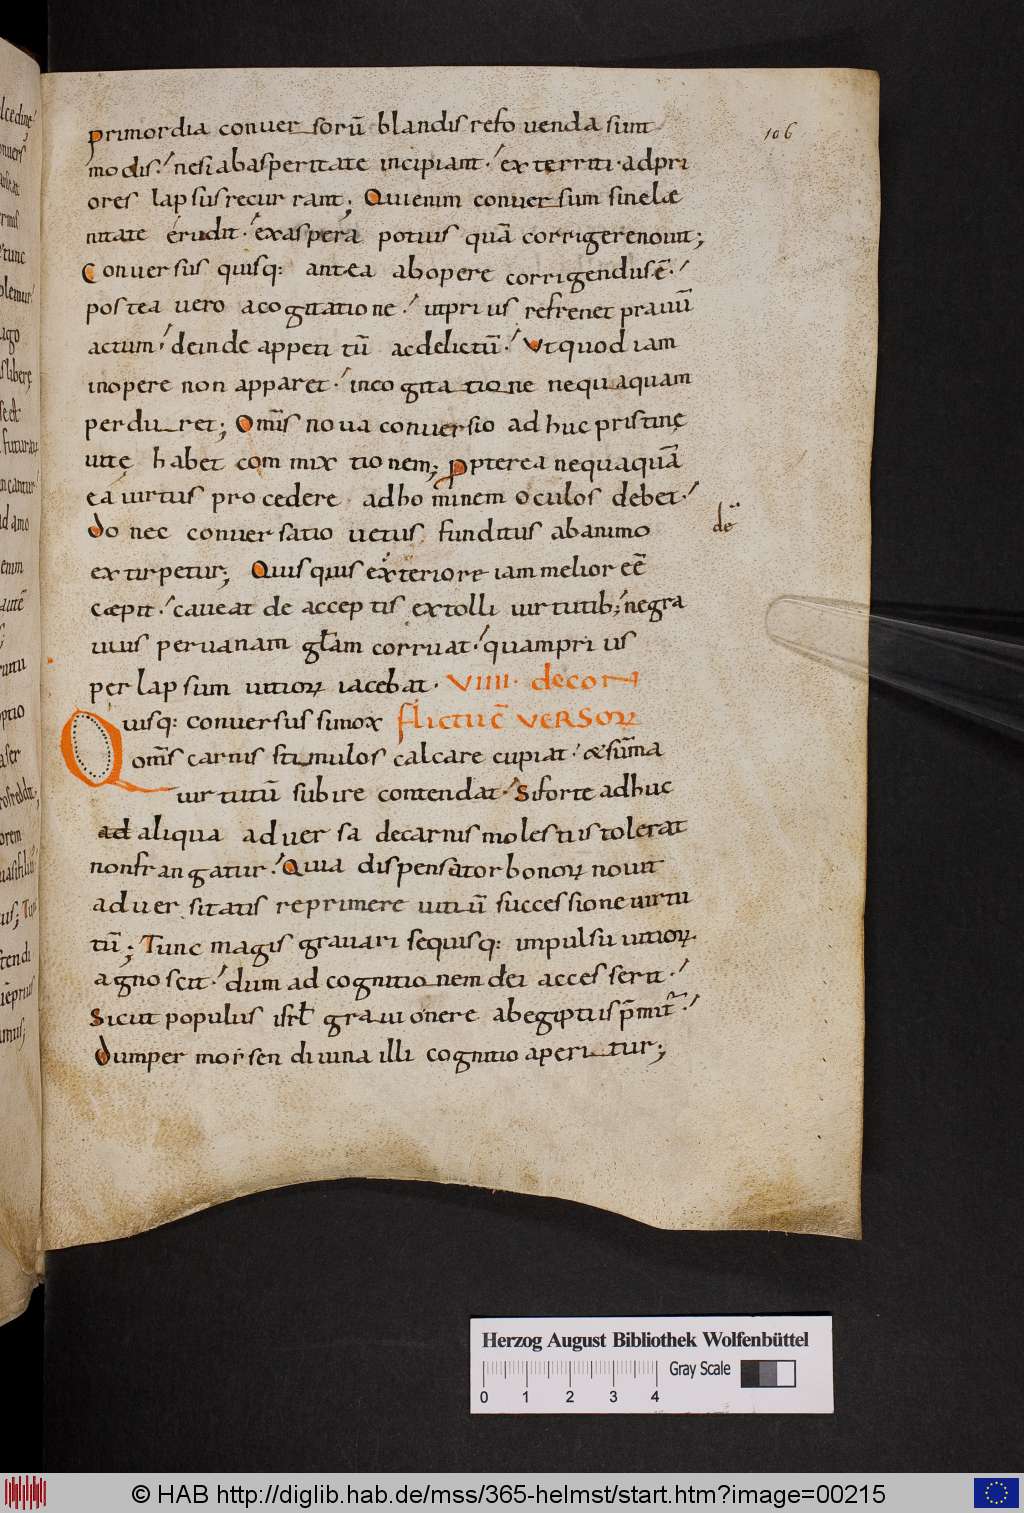 106
primordia conuersorū blandis refouenda sunt
modis; ne si ab asperitate incipiant; exterriti ad pri
ores lapsus recurrant; Qui enim conuersum sine le
nitate erudit; exasperare potius quā corrigere nouit;
Conuersus quisq: antea ab opere corrigendus ē;
postea uero a cogitatione; ut prius refrenet prauū
actum; deinde appetitū ac delictū; Vt quod iam
in opere non apparet; in cogitatione nequaquam
perduret; Omīs noua conuersio adhuc pristinę
uitę habet commixtionem; Ppterea nequaquā
ea uirtus procedere ad hominem oculos debet;
donec conuersatio uetus funditus ab animo
extirpetur; Quisquis exteriore iam melior eē
cæpit; caueat de acceptis extolli uirtutib; ne gra
uius per uanam glam corruat; quam prius
per lapsum uitiorꝝ iacebat. VIIII. de con
Quisq: conuersus si mox flictu cversorꝝ
omīs carnis stimulos calcare cupiat; & sūma
uirtutū subire contendat; Si forte adhuc
ad aliqua aduersa de carnis molestiis tolerat
non frangatur; Quia dispensator bonorꝝ nouit
aduersitatis reprimere uitiū successione uirtu
tū; Tunc magis grauari se quisq: impulsu uitiorꝝ
agnoscit; dum ad cognitionem dei accesserit;
Sicut populus isrl graui onere ab egiptiis p̄mitr̄;
dum per morsen diuina illi cognitio aperitur;
de
Herzog August Bibliothek Wolfenbüttel
Gray Scale
0 1 2 3 4
© HAB http://diglib.hab.de/mss/365-helmst/start.htm?image=00215